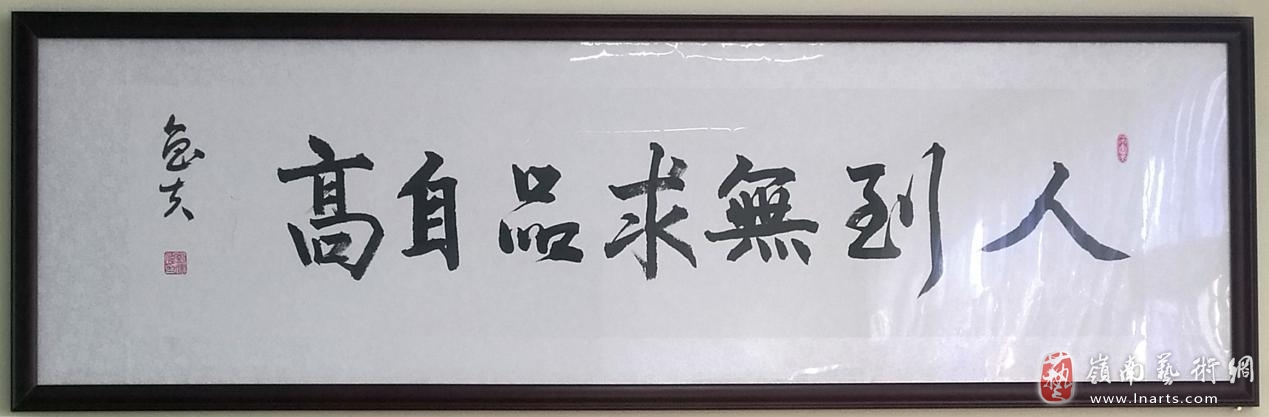 人到無求品自高
嶺南藝術網
www.lnarts.com